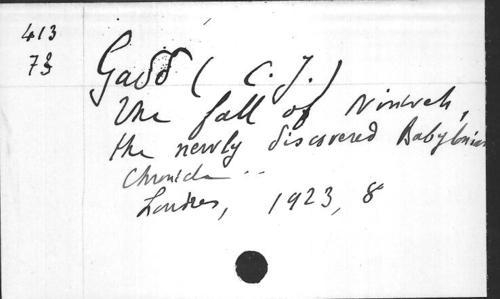 413
73
Gadd (C.J.)
The fall of Nineveh,
the newly discovered Babylonian
Chronicle ..
Londres, 1923, 8